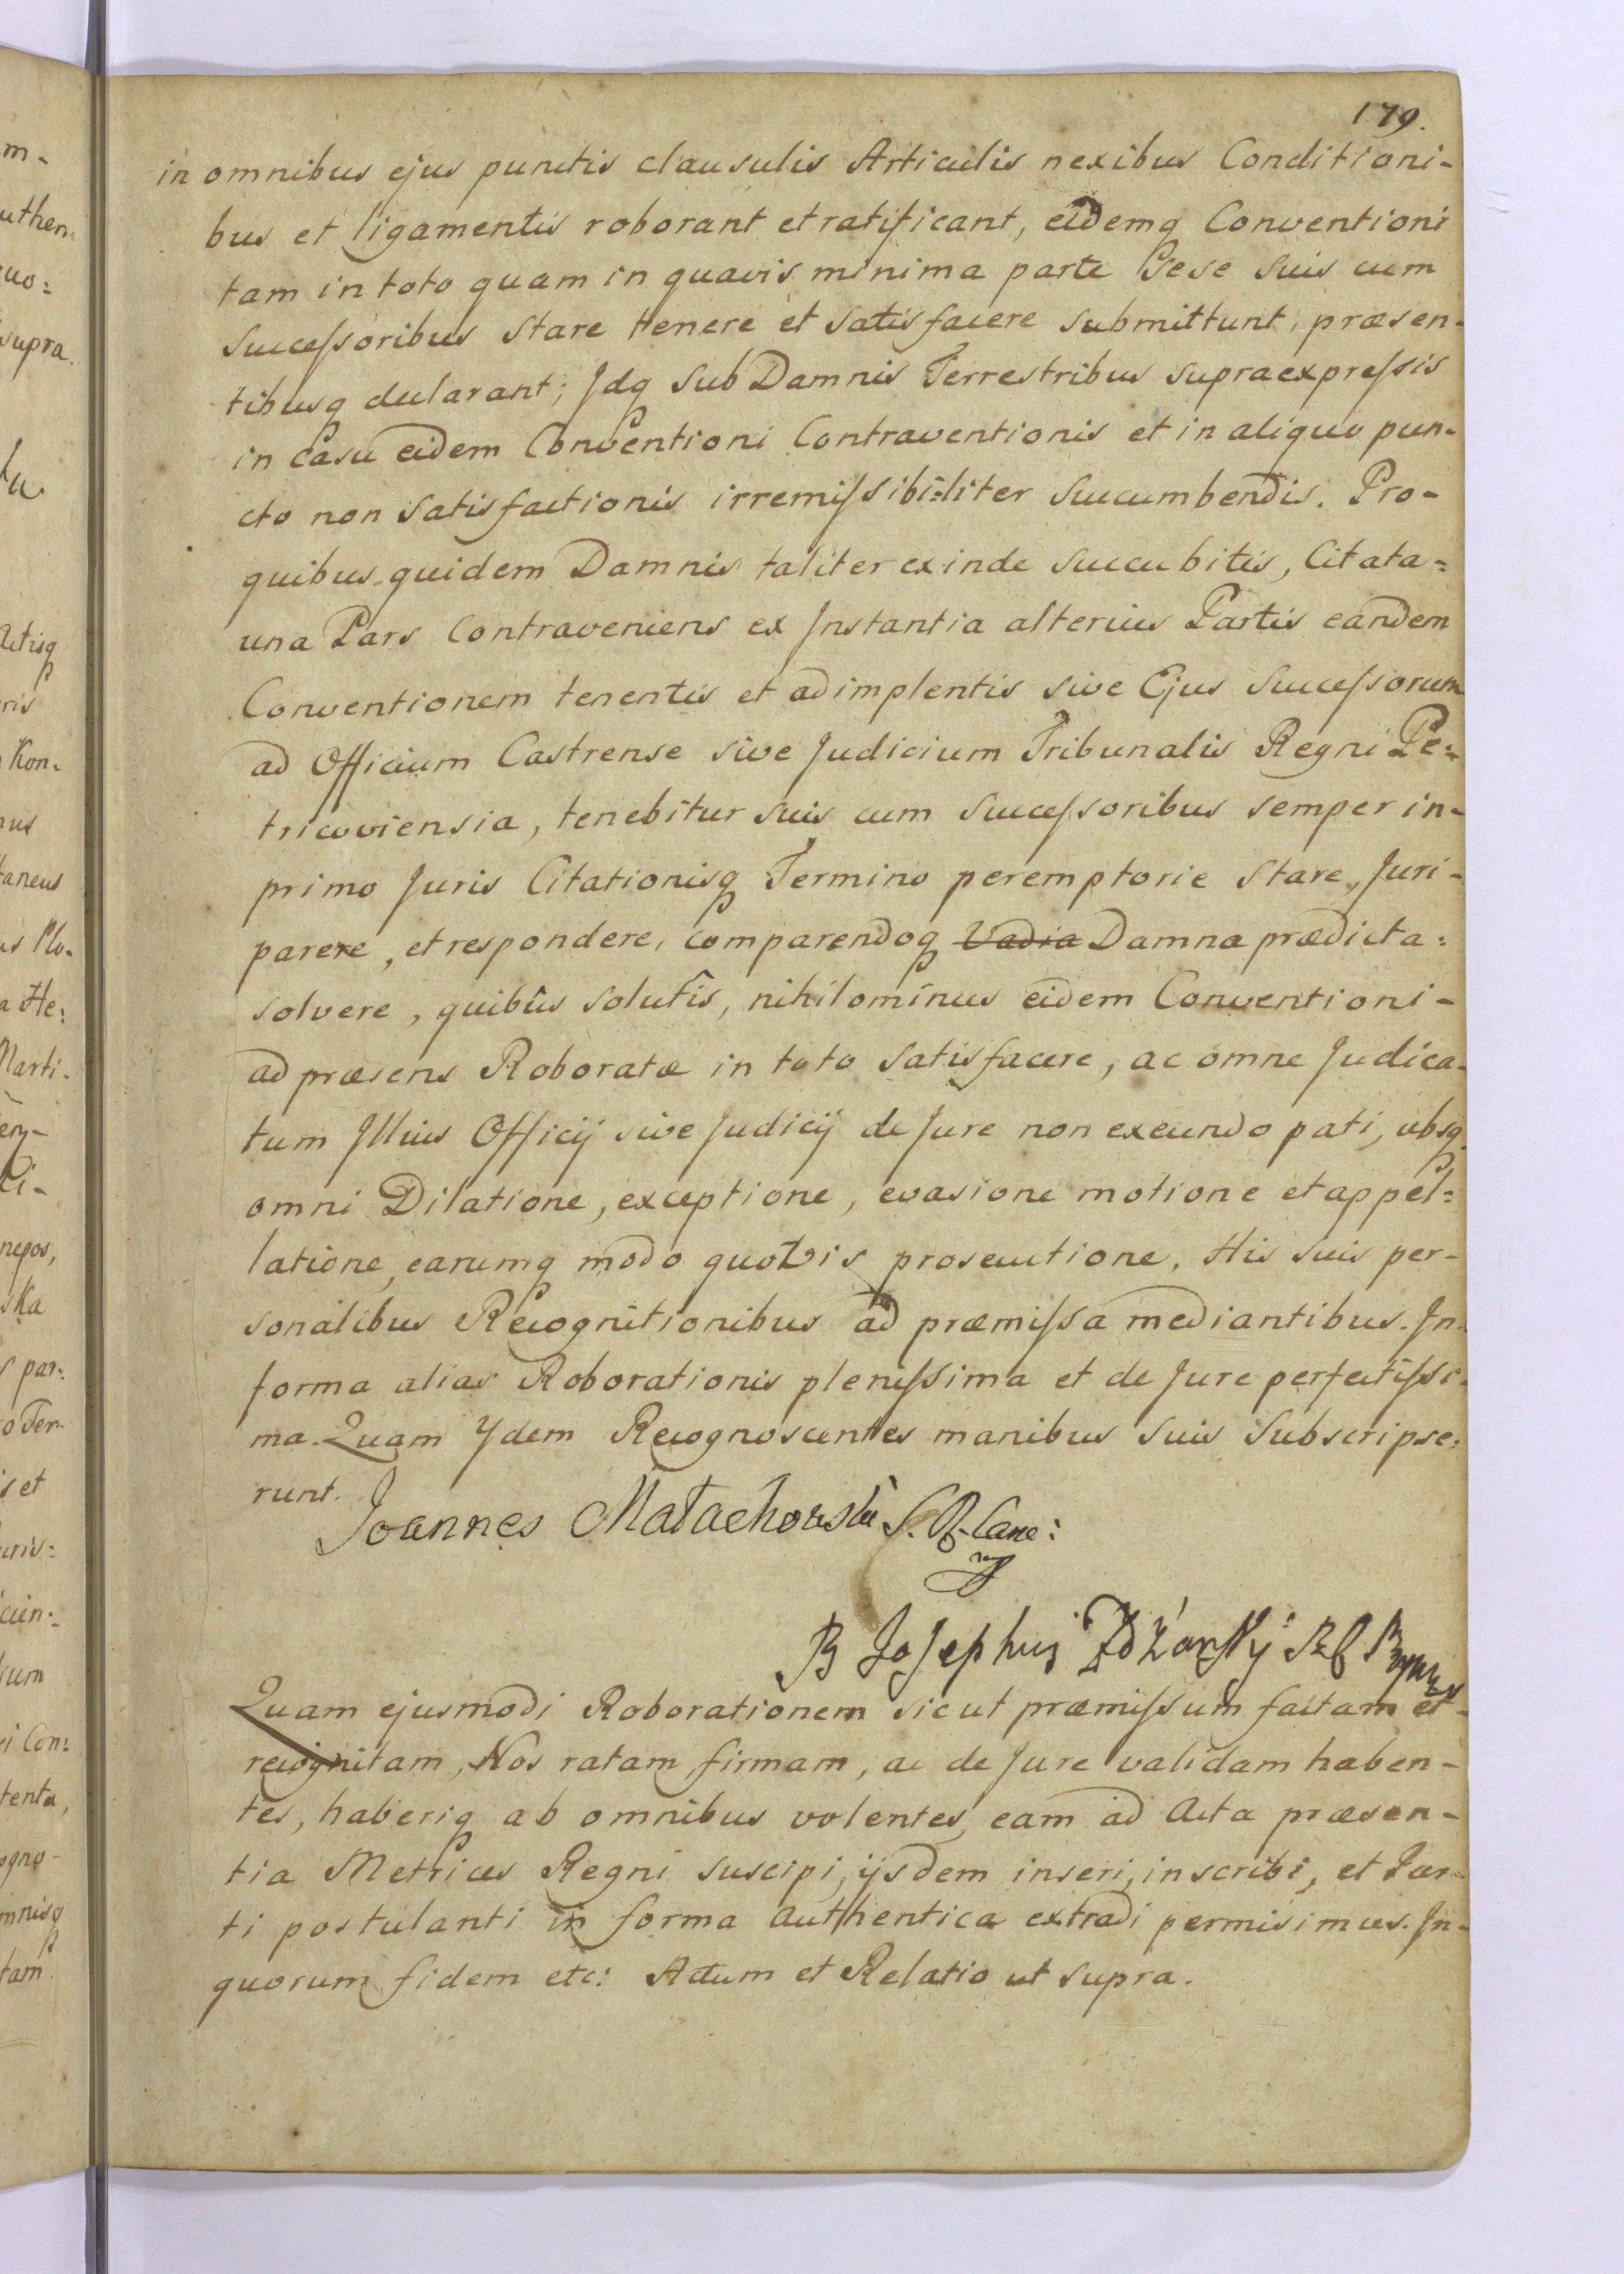 179.
in omnibus ejus punctis clausulis Articulis nexibus Conditioni-
bus et ligamentis roborant et ratificant, eidemq Conventioni
tam in toto quam in quavis minima parte sese suis cum
Successoribus stare tenere et satisfacere submittunt, præsen-
tibusq declarant; Jdq sub Damnis Terrestribus supraexpressis
in casu eidem Conventioni Contraventionis et in aliquo pun-
cto non satisfactionis irremissibi=liter succumbendis. Pro-
quibus quidem Damnis taliter exinde succubitis, Citata=
una Pars Contraveniens ex Jnstantia alterius Partis eandem
Conventionem tenentis et adimplentis sive Ejus Successorum
ad Officium Castrense sive Judicium Tribunalis Regni Pe=
tricoviensia, tenebitur suis cum Successoribus semper in-
primo Juris Citationisq Termino peremptorie stare, Juri-
parere, et respondere, comparendoq Vadia Damna prædicta=
solvere, quibus solutis, nihilominus eidem Conventioni-
ad præsens Roboratæ in toto satisfacere, ac omne Judica-
tum Jllius Officij sive Judicij de Jure non exeundo pati, absq
omni Dilatione, exceptione, evasione motione et appel=
latione, earumq modo quovis prosecutione, His suis per-
sonalibus Recognitionibus ad præmissa mediantibus. Jn-
forma alias Roborationis plenissima et de Jure perfectissi-
ma. Quam Ydem Recognoscentes manibus suis Subscripse=
runt.
Joannes Małachowski S. R. Canc:
B Josephus Zdżarsky
Quam ejusmodi Roborationem sicut præmissum factam et-
recognitam, Nos ratam firmam, ac de Jure validam haben-
tes, haberiq ab omnibus volentes, eam ad Acta præsen-
tia Metrices Regni suscipi, ijsdem inseri, inscribi, et Par-
ti postulanti in forma authentica extradi permisimus. Jn-
quorum fidem etc: Actum et Relatio ut supra.
m-
uthen-
uo=
supra.
Actisq
ris
Kon-
nus
taneus
a He:
Marti-
nepos,
ska
s par=
o Ter-
is et
uris=
cien=
ium
i Con=
tenta,
ogno-
mnisq
tam